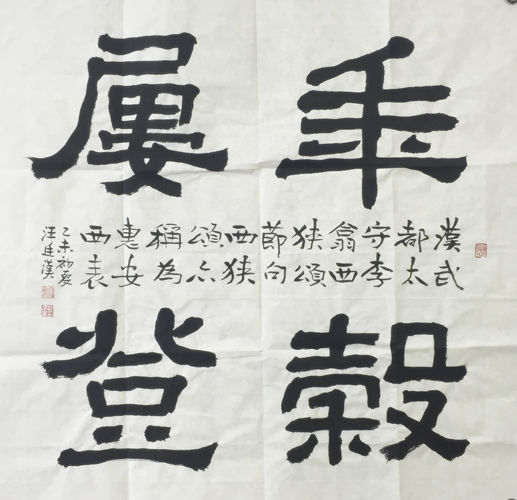 年穀
屢登
漢武
都太
守李
翕西
狭頌
節句
西狭
頌亦
稱為
惠安
西表
乙未初夏
汪廷漢